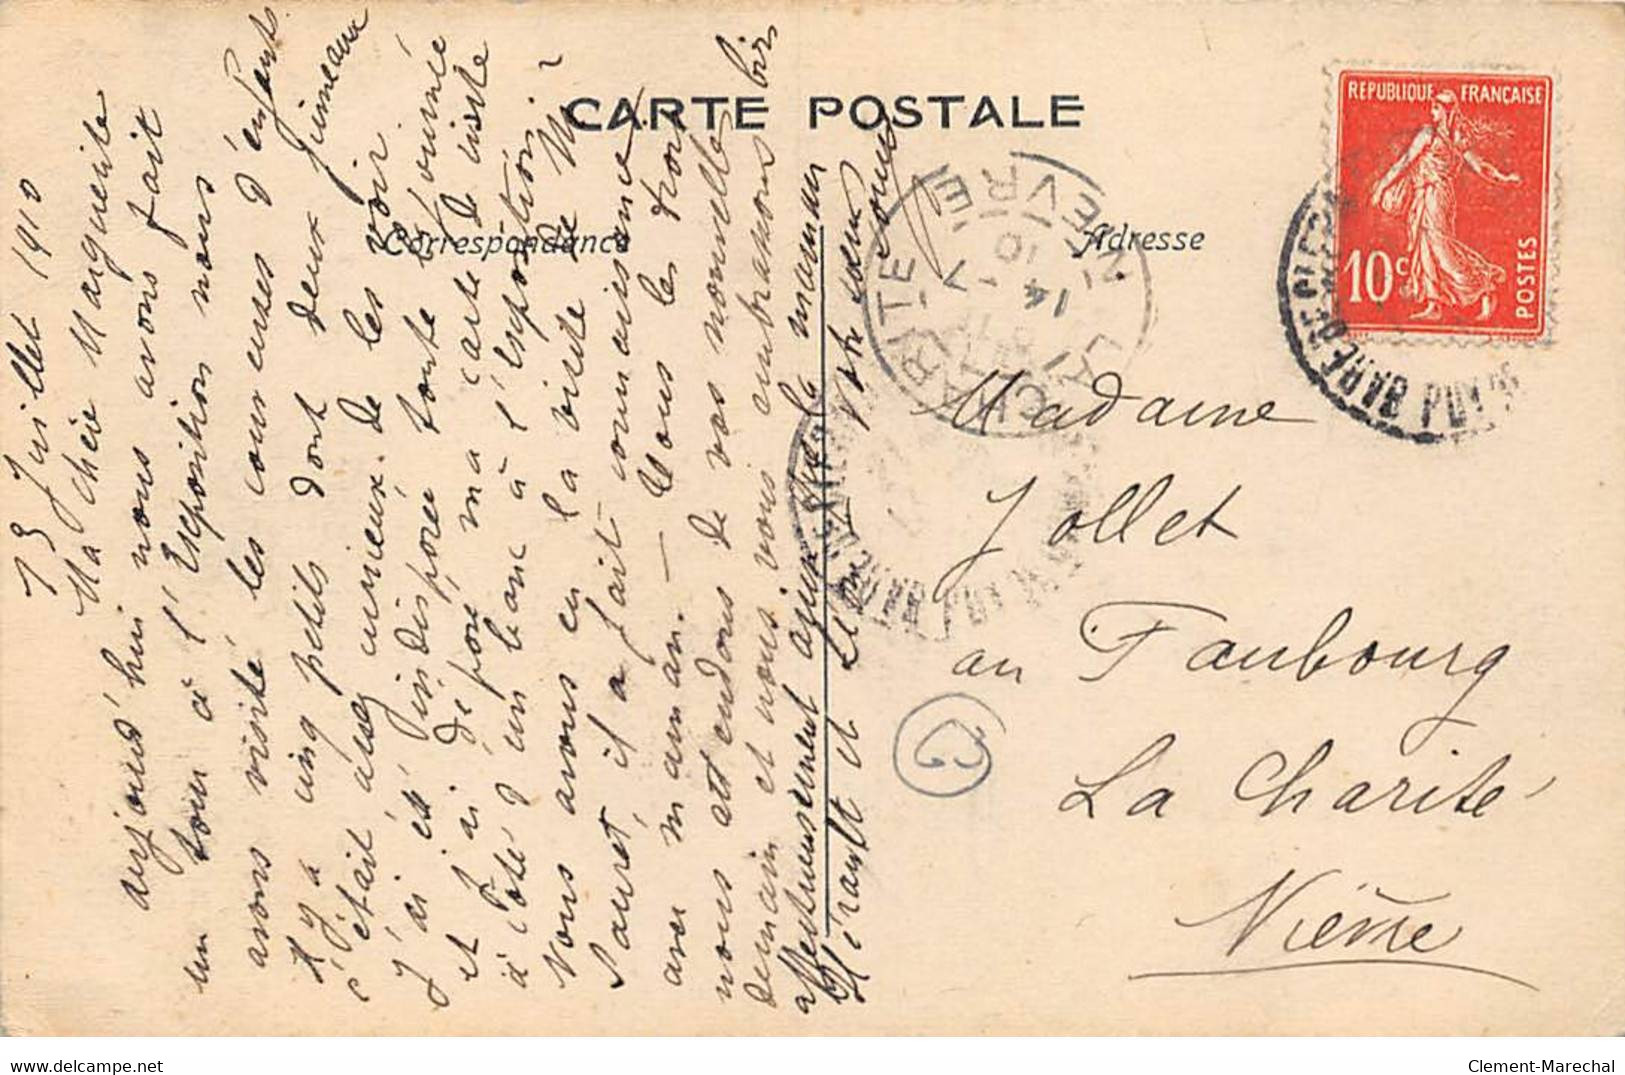 CARTE POSTALE
Correspondance
Adresse
REPUBLIQUE FRANÇAISE
10c
POSTES
GARE DE CLERMONT
PUY DE
LA CHARITE
NIEVRE
14-7
10
13 Juillet 1910
Ma chère Marguerite
aujourd'hui nous avons fait
un tour à l'Exposition nous
avons visité les couveuses d'enfants
il y a cinq petits dont deux jumeaux
c'était assez curieux de les voir
J'ai été indisposée toute la journée
et j'ai déposé ma carte de visite
à côté d'un banc à l'Exposition.
Nous avons eu la visite de Mr
Sauret, il a fait connaissance
avec maman. — Nous les trois
nous attendons de vos nouvelles
demain et nous vous embrassons bien
affectueusement ainsi que la maman
Hérault et Votre sœur
Madame
Jollet
au Faubourg
La Charité
Nièvre
Clement-Marechal